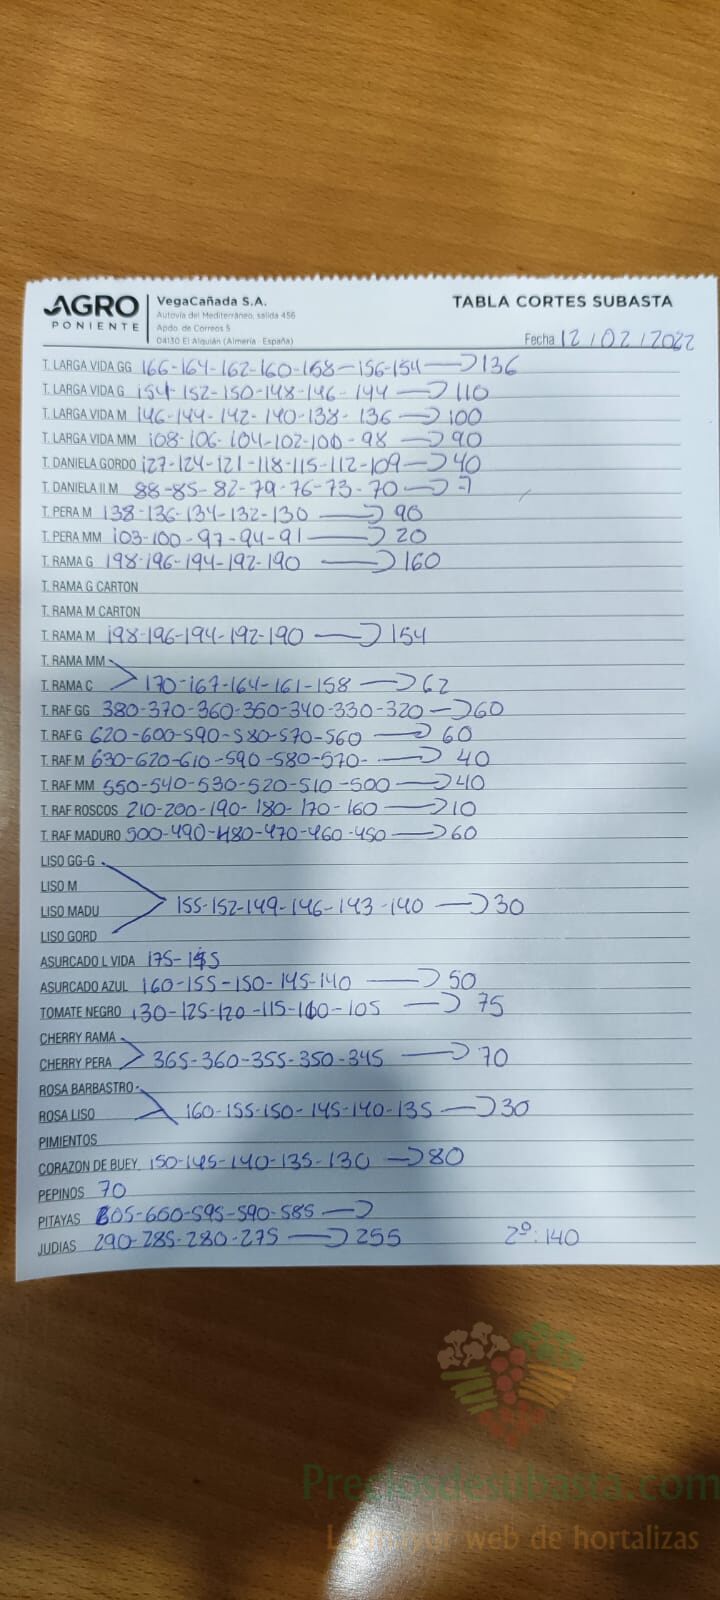 AGRO
PONIENTE
VegaCañada S.A.
Autovía del Mediterráneo, salida 456
Apdo. de Correos 5
04130 El Alquián (Almería España)
TABLA CORTES SUBASTA
Fecha 12/02/2022
T. LARGA VIDA GG 166-164-162-160-158-156-154 → 136
T. LARGA VIDA G 154-152-150-148-146-144 → 110
T. LARGA VIDA M 146-144-142-140-138-136 → 100
T. LARGA VIDA MM 108-106-104-102-100-98 → 90
T. DANIELA GORDO 127-124-121-118-115-112-109 → 40
T. DANIELA II.M 88-85-82-79-76-73-70 →
T. PERA M 138-136-134-132-130 → 90
T. PERA MM 103-100-97-94-91 → 20
T. RAMA G 198-196-194-192-190 → 160
T. RAMA G CARTON
T. RAMA M CARTON
T. RAMA M 198-196-194-192-190 → 154
T. RAMA MM
T. RAMA C 170-167-164-161-158 → 62
T. RAF GG 380-370-360-350-340-330-320 → 60
T. RAF G 620-600-590-580-570-560 → 60
T. RAF M 630-620-610-590-580-570- → 40
T. RAF MM 550-540-530-520-510-500 → 40
T. RAF ROSCOS 210-200-190-180-170-160 → 10
T. RAF MADURO 500-490-480-470-460-450 → 60
LISO GG-G
LISO M
LISO MADU 155-152-149-146-143-140 → 30
LISO GORD
ASURCADO L VIDA 175-
ASURCADO AZUL 160-155-150-145-140 → 50
TOMATE NEGRO 130-125-120-115-110-105 → 75
CHERRY RAMA
CHERRY PERA 365-360-355-350-345 → 70
ROSA BARBASTRO
ROSA LISO 160-155-150-145-140-135 → 30
PIMIENTOS
CORAZON DE BUEY 150-145-140-135-130 → 80
PEPINOS 70
PITAYAS 605-600-595-590-585 →
JUDIAS 290-285-280-275 → 255 2º: 140
Preciosdesubasta.com
La mayor web de hortalizas